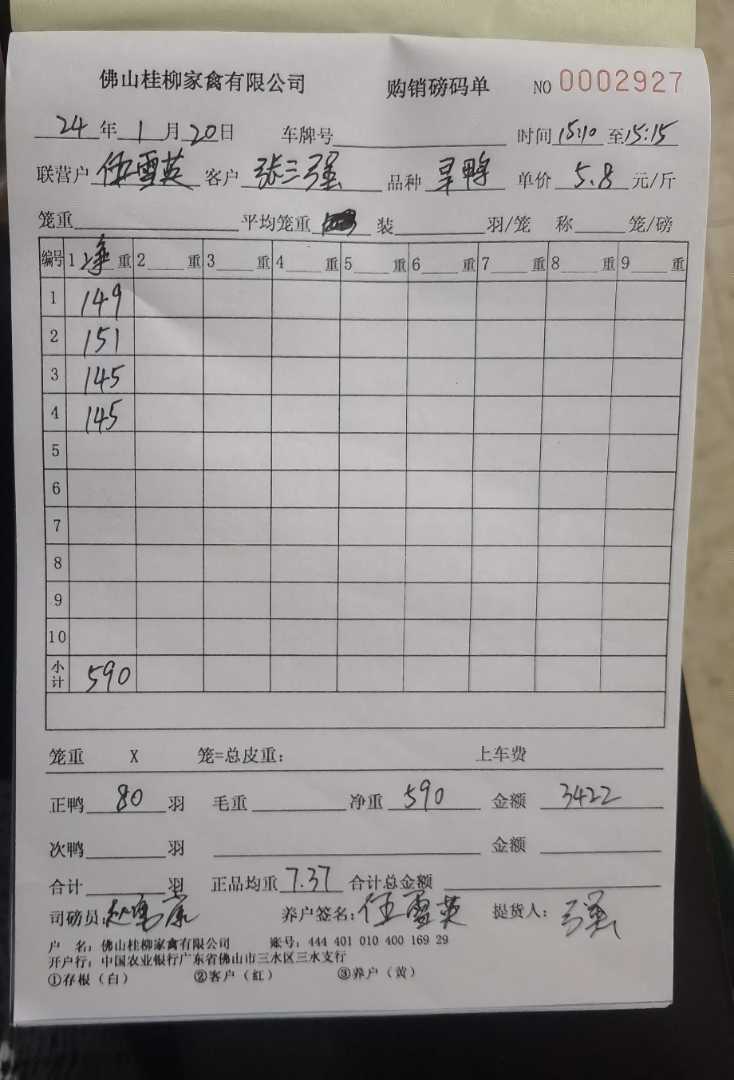 佛山桂柳家禽有限公司 购销磅码单 NO 0002927
24年1月20日 车牌号 时间15:10至15:15
联营户 伍雪英 客户 张三强 品种 旱鸭 单价 5.8 元/斤
笼重 平均笼重 装 羽/笼 称 笼/磅
编号 1净重 2 重 3 重 4 重 5 重 6 重 7 重 8 重 9 重
1 149
2 151
3 145
4 145
5
6
7
8
9
10
小计 590
笼重 X 笼=总皮重: 上车费
正鸭 80 羽 毛重 净重 590 金额 3422
次鸭 羽 金额
合计 羽 正品均重 7.37 合计总金额
司磅员: 养户签名: 伍雪英 提货人: 强
户 名: 佛山桂柳家禽有限公司 账号: 444 401 010 400 169 29
开户行: 中国农业银行广东省佛山市三水区三水支行
①存根（白） ②客户（红） ③养户（黄）